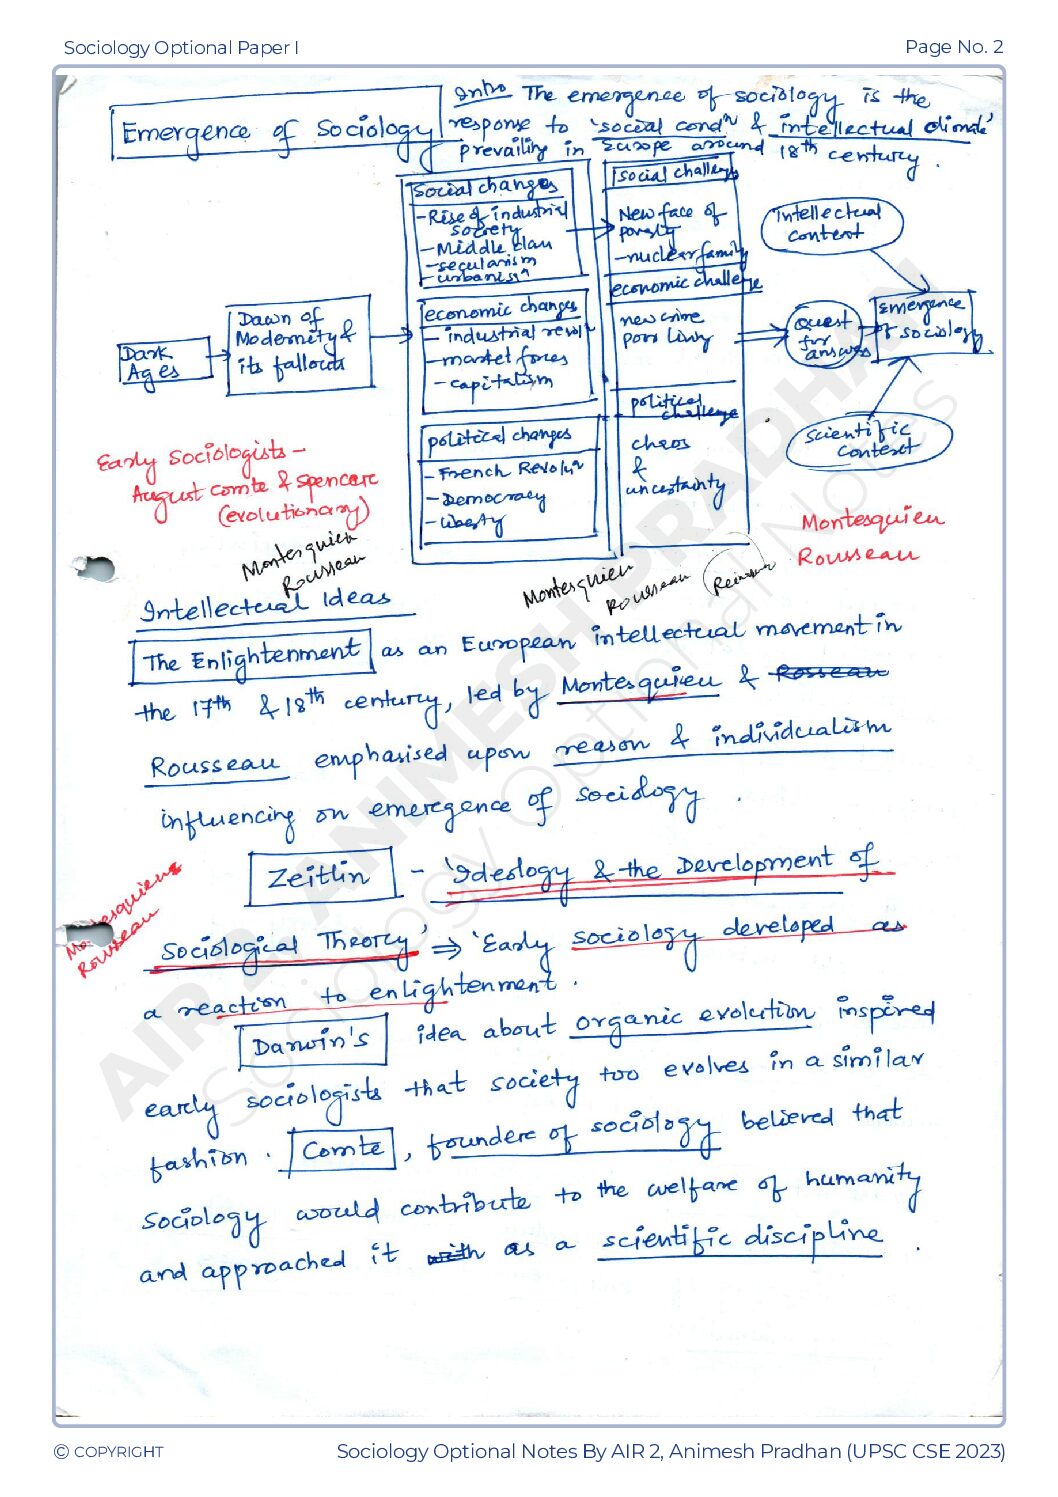 Sociology Optional Paper I
Page No. 2
Emergence of Sociology
Intro The emergence of sociology is the
response to 'social condn & intellectual climate'
prevailing in Europe around 18th century.
Dark
Ages
Dawn of
Modernity &
its fallouts
Social changes
- Rise of industrial
society
- Middle class
- secularism
- urbanisn
economic changes
- industrial revoln
- market forces
- capitalism
political changes
- French Revolun
- Democracy
- liberty
social challenge
New face of
poverty
- nuclear family
economic challenge
new crime
poor living
political
challenge
chaos
&
uncertainty
Intellectual
context
Quest
for
answers
Emergence
of sociology
Scientific
context
Early Sociologists -
August comte & Spencer
(evolutionary)
Montesquieu
Rousseau
Montesquieu
Rousseau
Montesquieu
Rousseau
Intellectual Ideas
The Enlightenment as an European intellectual movement in
the 17th & 18th century, led by Montesquieu & Rosseau
Rousseau emphasised upon reason & individualism
influencing on emergence of sociology.
Zeitlin - 'Ideology & the Development of
Montesquieu
Rousseau
Sociological Theory' ⇒ 'Early sociology developed as
a reaction to enlightenment.
Darwin's idea about organic evolution inspired
early sociologists that society too evolves in a similar
fashion. Comte, founder of sociology believed that
sociology would contribute to the welfare of humanity
and approached it with as a scientific discipline.
AIR 2, ANIMESH PRADHAN
Sociology Optional Notes
© COPYRIGHT
Sociology Optional Notes By AIR 2, Animesh Pradhan (UPSC CSE 2023)